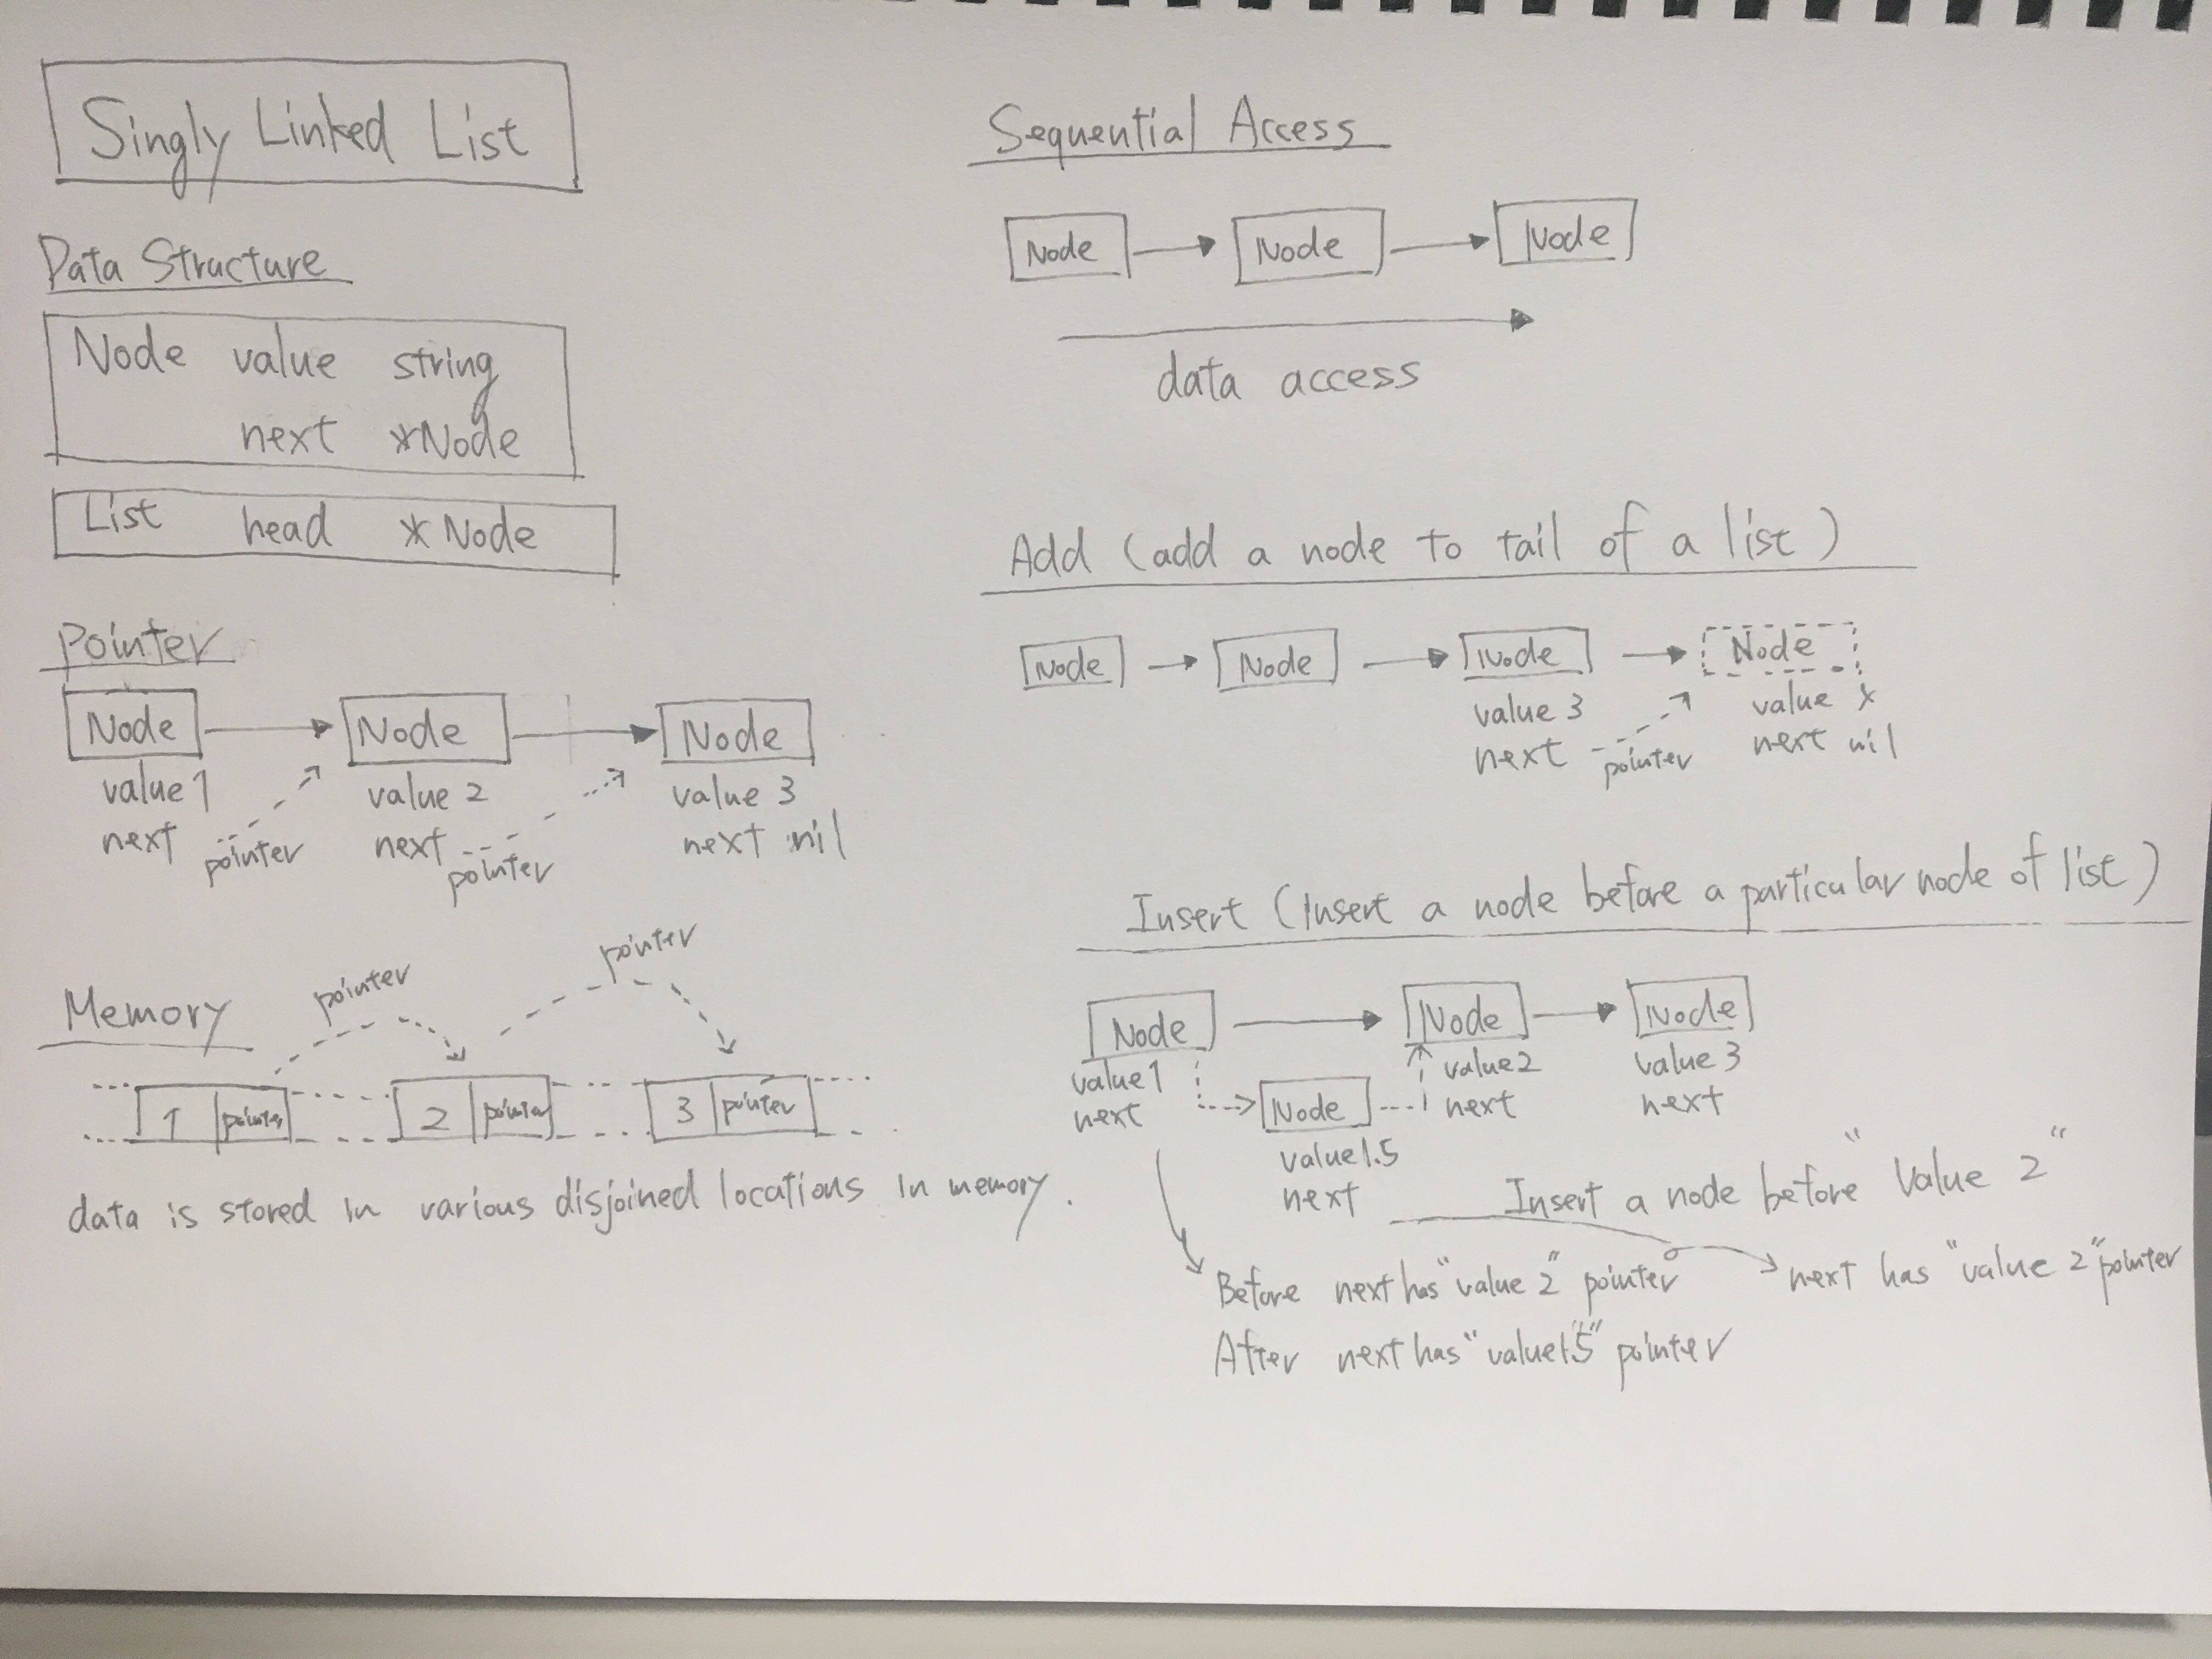 Singly Linked List
Data Structure
Node value string
next *Node
List head *Node
Pointer
Node Node Node
value 1 value 2 value 3
next pointer next pointer next nil
Memory
pointer pointer
1 pointer 2 pointer 3 pointer
data is stored in various disjoined locations in memory.
Sequential Access
Node Node Node
data access
Add (add a node to tail of a list)
Node Node Node Node
value 3 value x
next pointer next nil
Insert (Insert a node before a particular node of list)
Node Node Node
value 1 value 2 value 3
next Node next next
value 1.5
next
Insert a node before "Value 2"
Before next has "value 2" pointer
After next has "value 1.5" pointer
next has "value 2" pointer